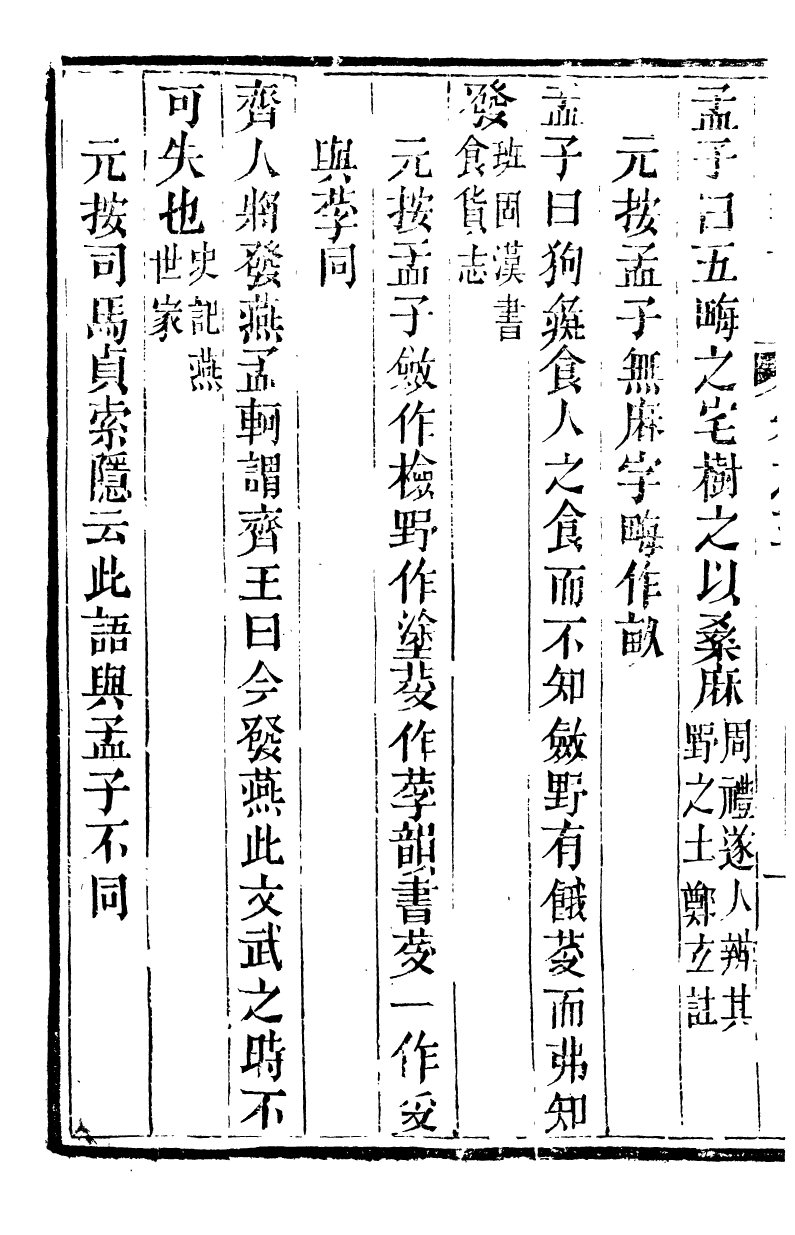 孟子曰五畮之宅樹之以桑麻周禮遂人辨其野之土鄭玄註
元按孟子無麻字畮作畝
孟子曰狗彘食人之食而不知斂野有餓芰而弗知
發班固漢書食貨志
元按孟子斂作檢野作塗芰作莩韻書芰一作𠬪
與莩同
齊人將發燕孟軻謂齊王曰今發燕此文武之時不
可失也史記燕世家
元按司馬貞索隱云此語與孟子不同